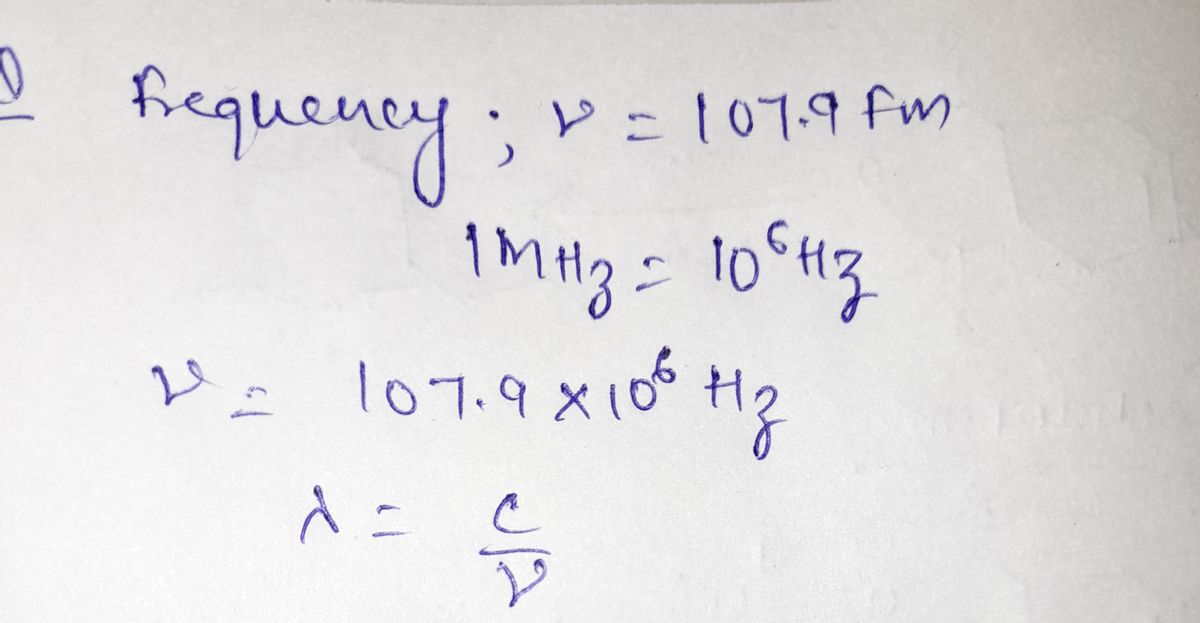 Frequency; ν = 107.9 Fm
1MHz = 10⁶Hz
ν = 107.9 × 10⁶ Hz
λ = c/ν